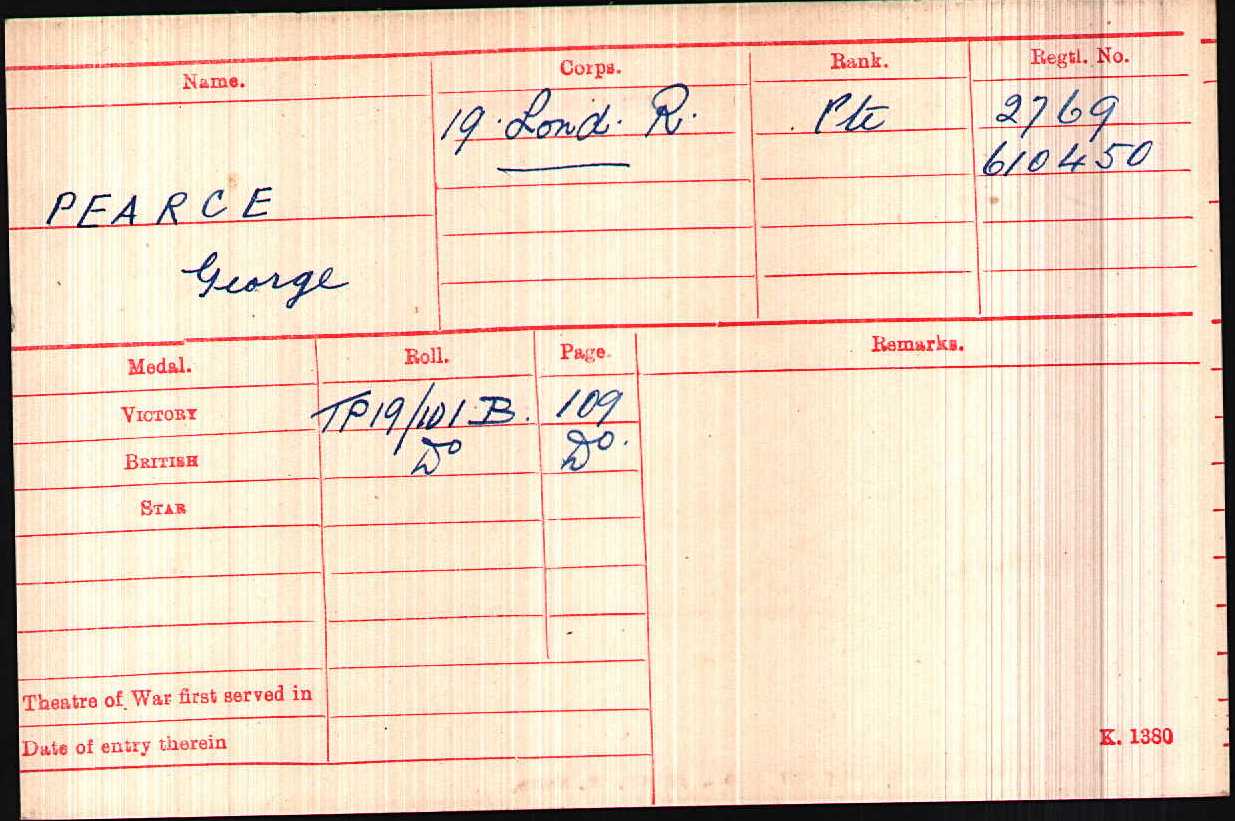 Name. Corps. Rank. Regtl. No.
19. Lond. R. Pte 2769
610450
PEARCE
George
Medal. Roll. Page. Remarks.
VICTORY TP19/101 B. 109
BRITISH Do Do.
STAR
Theatre of War first served in
Date of entry therein
K. 1380